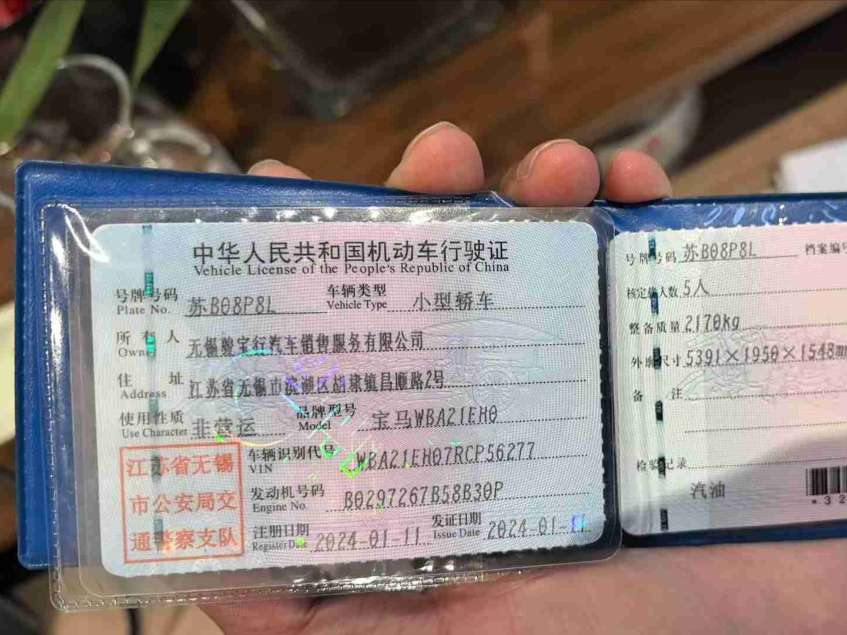 中华人民共和国机动车行驶证
Vehicle License of the People's Republic of China
号牌号码 苏B08P8L 车辆类型 小型轿车
Plate No. Vehicle Type
所有人 无锡骏宝行汽车销售服务有限公司
Owner
住址 江苏省无锡市滨湖区胡埭镇昌顺路2号
Address
使用性质 非营运 品牌型号 宝马WBA21EH0
Use Character Model
车辆识别代号 WBA21EH07RCP56277
VIN
发动机号码 B0297267B58B30P
Engine No.
注册日期 2024-01-11 发证日期 2024-01-11
Register Date Issue Date
江苏省无锡
市公安局交
通警察支队
号牌号码 苏B08P8L 档案编号
核定载人数 5人
整备质量 2170kg
外廓尺寸 5391×1950×1548
备注
检验记录
汽油
*32